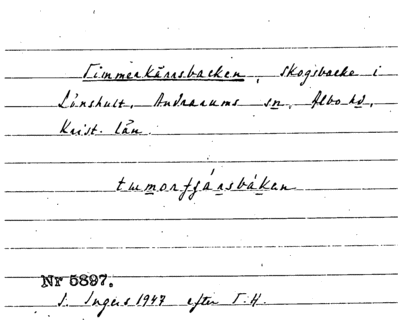 Timmerkärrsbacken, skogsbacke i
Lönshult, Andrarums sn, Albo hd,
Krist. län.
Nr 5897.
I. Ingers 1947 efter T.H.